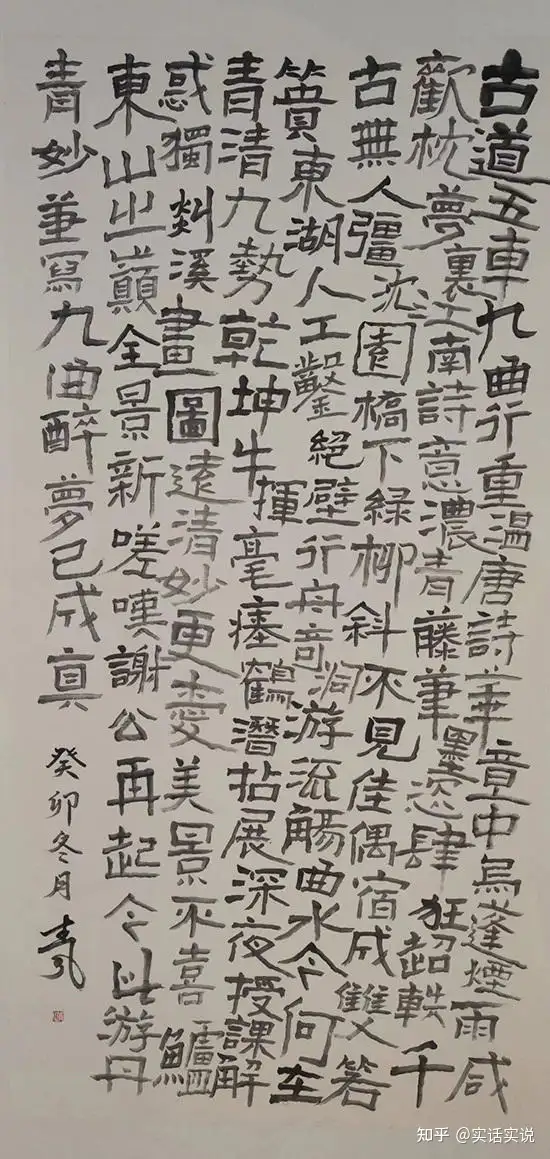 古道五車九曲行重溫唐詩華章中烏蓬煙雨咸
歡枕夢裏江南詩意濃青藤筆墨恣肆狂超軼千
古無人彊沈園橋下綠柳斜不見佳偶宿成雙箬
簣東湖人工鑿絕壁行舟奇洞游流觴曲水今何在
青清九勢乾坤牛揮毫瘞鶴潛拈展深夜授課解
惑獨剡溪畫圖遠清妙更愛美景不喜鱸
東山之巔全景新嗟嘆謝公再起今此游丹
青妙筆寫九曲醉夢已成真
癸卯冬月
知乎 @实话实说